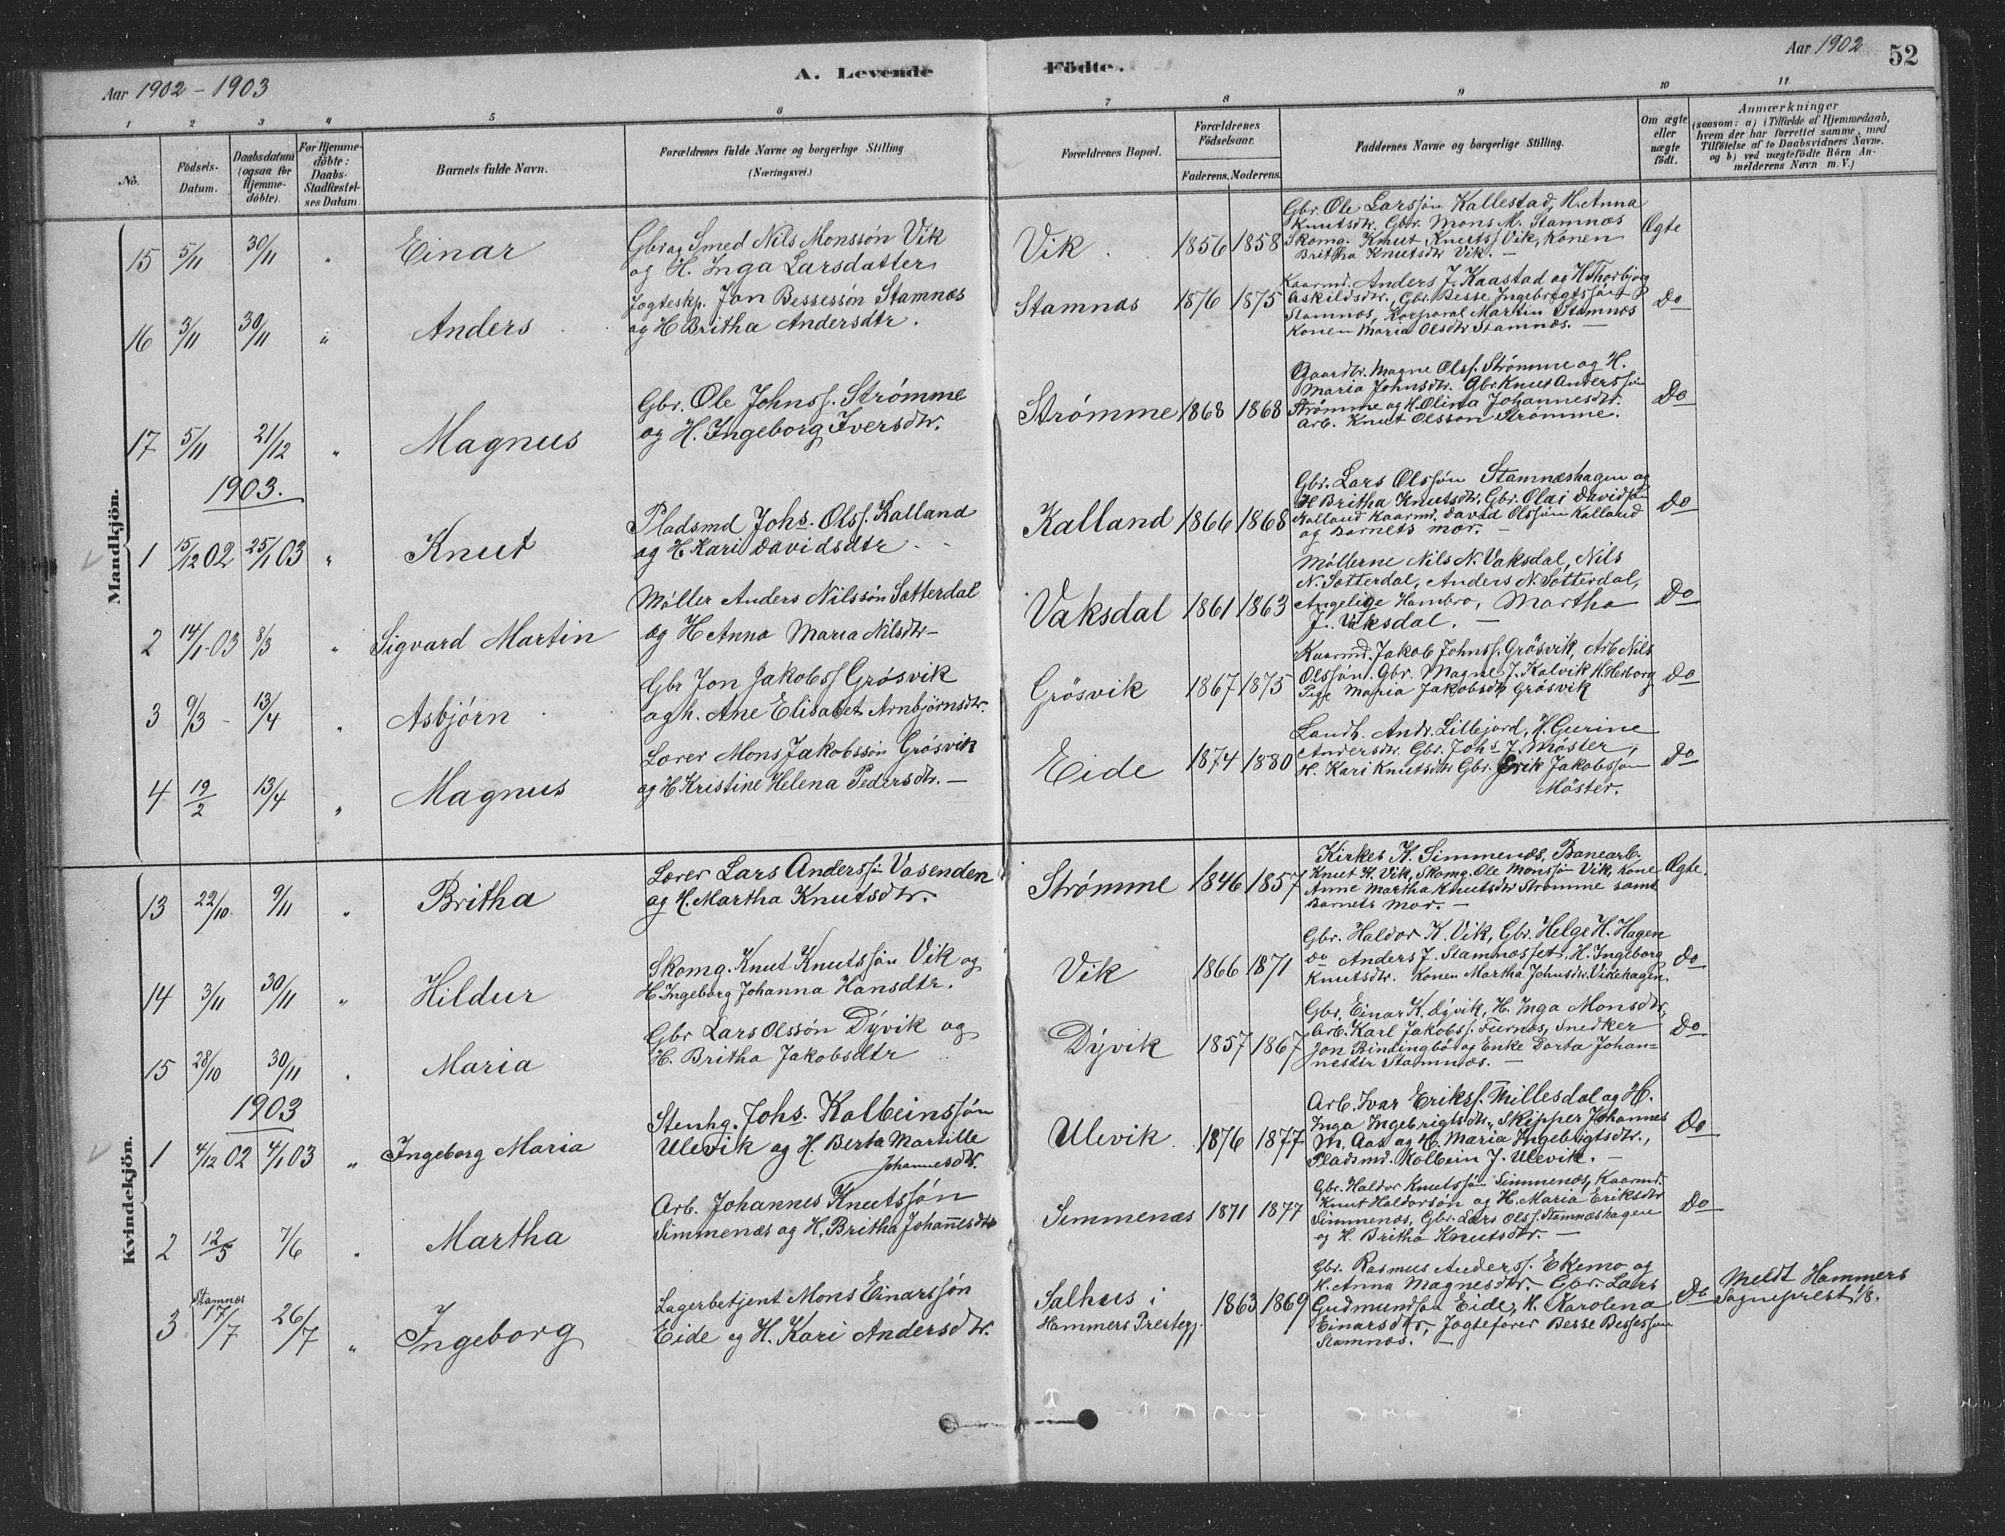 Aar 1902 - 1903
A. Levende Födte.
Aar 1902
52
1 2 3 4 5 6 7 8 9 10 11
No.
Födsels-Datum.
Daabsdatum (ogsaa for Hjemmedöbte).
For Hjemmedöbte: Daabs-Stadfæstelses Datum
Barnets fulde Navn.
Forældrenes fulde Navne og borgerlige Stilling (Næringsvei.)
Forældrenes Bopæl.
Forældrenes Födselsaar.
Faderens. Moderens.
Faddernes Navne og borgerlige Stilling.
Om ægte eller uægte födt.
Anmærkninger
(saasom: a) i Tilfælde af Hjemmedaab,
hvem der har forrettet samme, med
Tilföielse af to Daabsvidners Navne,
og b) ved uægtefödte Börn An-
melderens Navn m. V.)
Mandkjön.
15 5/11 30/11 " Einar
Gbr og Smed Nils Monssön Vik
og H. Inga Larsdatter
Vik 1856 1858
Gbr. Ole Larssön Kallestad, H. Anna
Knutsdtr. Gbr. Mons M. Stamnæs
Skomg. Knut Knutss Vik, Konen
Britha Knutsdtr Vik. –
Ægte
16 3/11 30/11 " Anders
Jægteskp. Jon Bessessön Stamnæs
og H Britha Andersdtr.
Stamnæs 1876 1875
Kaarmd. Anders J. Kaastad og H Thorbjög
Askildsdtr., Gbr. Besse Ingebrigtssön
Stamnæs, Korporal Martin Stamnæs
Konen Maria Olsdtr Stamnæs. –
Do
17 5/11 21/12 " Magnus
Gbr. Ole Johnss. Strømme
og H. Ingeborg Iversdtr.
Strømme 1868 1868
Gaardbr. Magne Olss. Strømme og H.
Maria Johnsdtr. Gbr. Knut Anderssön
Strømme og H. Olina Johannesdtr.
Arb. Knut Olsson Strømme.
Do
1903.
1 15/12 02 25/1 03 " Knut
Pladsmd Johs. Olss. Kalland
og H Kari Davidsdtr
Kalland 1866 1868
Gbr. Lars Olssön Stamnæshagen og
H Britha Knutsdtr. Gbr. Olai Davidsön
Kalland Kaarmd. David Olssøn Kalland
og Barnets mor. –
Do
2 14/1-03 8/3 " Sigvard Martin
Møller Anders Nilssön Sætterdal
og H Anna Maria Nilsdtr –
Vaksdal 1861 1863
Møllerne Nils N. Vaksdal, Nils
N. Sætterdal, Anders N. Sætterdal,
Angelige Hambro, Martha
J. Vaksdal. –
Do
3 9/3 13/4 " Asbjørn
Gbr Jon Jakobss Grøsvik
og h. Ane Elisabet Arnbjørnsdtr.
Grösvik 1867 1875
Kaarmd. Jakob Johnss. Grösvik, Arb Nils
Olssön, Gbr. Magne J. Kalvik H. Herborg
Pige Maria Jakobsdtr Grøsvik
Do
4 19/2 13/4 " Magnus
Lærer Mons Jakobssön Grøsvik
og H Kristine Helena Pedersdtr. –
Eide 1874 1880
Landh. Andr. Lillejord, H. Gurine
Andersdtr. Gbr. Johs J. Møster,
H. Kari Knutsdtr Gbr. Erik Jakobsson
Møster.
Do
Kvindekjön.
13 22/10 9/11 " Britha
Lærer Lars Anderssön Vasenden
og H. Martha Knutsdtr.
Strømme 1846 1857
Kirkes K. Simmenæs, Banearb.
Knut K. Vik, Skomg. Ole Monssøn Vik, kone
Anne Martha Knutsdtr Strømme samt
Barnets mor. –
Ægte.
14 3/11 30/11 " Hildur
Skomg. Knut Knutssön Vik og
H. Ingeborg Johanna Hansdtr.
Vik 1866 1871
Gbr. Haldor K. Vik, Gbr. Helge H. Hagen
Do Anders J. Stamnæsset, H. Ingeborg
Knutsdtr. Konen Martha Johnsdtr. Vikehagen.
Do
15 28/10 30/11 " Maria
Gbr Lars Olssön Dÿvik og
H. Britha Jakobsdtr
Dÿvik 1857 1867
Gbr. Einar K. Dÿvik, H. Inga Monsdtr,
Arb. Karl Jakobss. Furnæs, Snedker
Jon Bindingbø og Enke Dorta Johan-
nesdtr Stamnæs. –
Do
1903
1 4/12 02 4/1 03 " Ingeborg Maria
Stenhg. Johs. Kolbeinssön
Ulevik og H. Berta Martille
Johannesdtr.
Ulevik 1876 1877
Arb. Ivar Erikss. Millesdal og H.
Inga Ingebrigtsdtr., Skipper Johannes
M. Aas og H. Maria Ingebrigtsdtr.,
Pladsmd. Kolbein J. Ulevik. –
Do
2 12/5 7/6 " Martha
Arb. Johannes Knutssön
Simmenæs og H. Britha Johannesdtr
Simmenæs 1871 1877
Gbr. Haldor Knutssön Simmenæs, Kaarmd.
Knut Haldorsön og H. Maria Eriksdtr
Simmenæs, Gbr. Lars Olss. Stamnæshagen
og H. Britha Knutsdtr. –
Do
3 Stamnæs 17/7 26/7 " Ingeborg
Lagerbetjent Mons Einarssön
Eide og H. Kari Andersdtr.
Salhus i
Hammers Prestegj. 1863 1869
Gbr. Rasmus Anderss. Ekemo og
H. Anna Magnesdtr. Gbr. Lars
Gudmundsön Eide, H. Karolena
Einarsdtr, Jægtefører Besse Bessesøn
Stamnæs. –
Do
Meldt Hammers
Sogneprest 1/8.